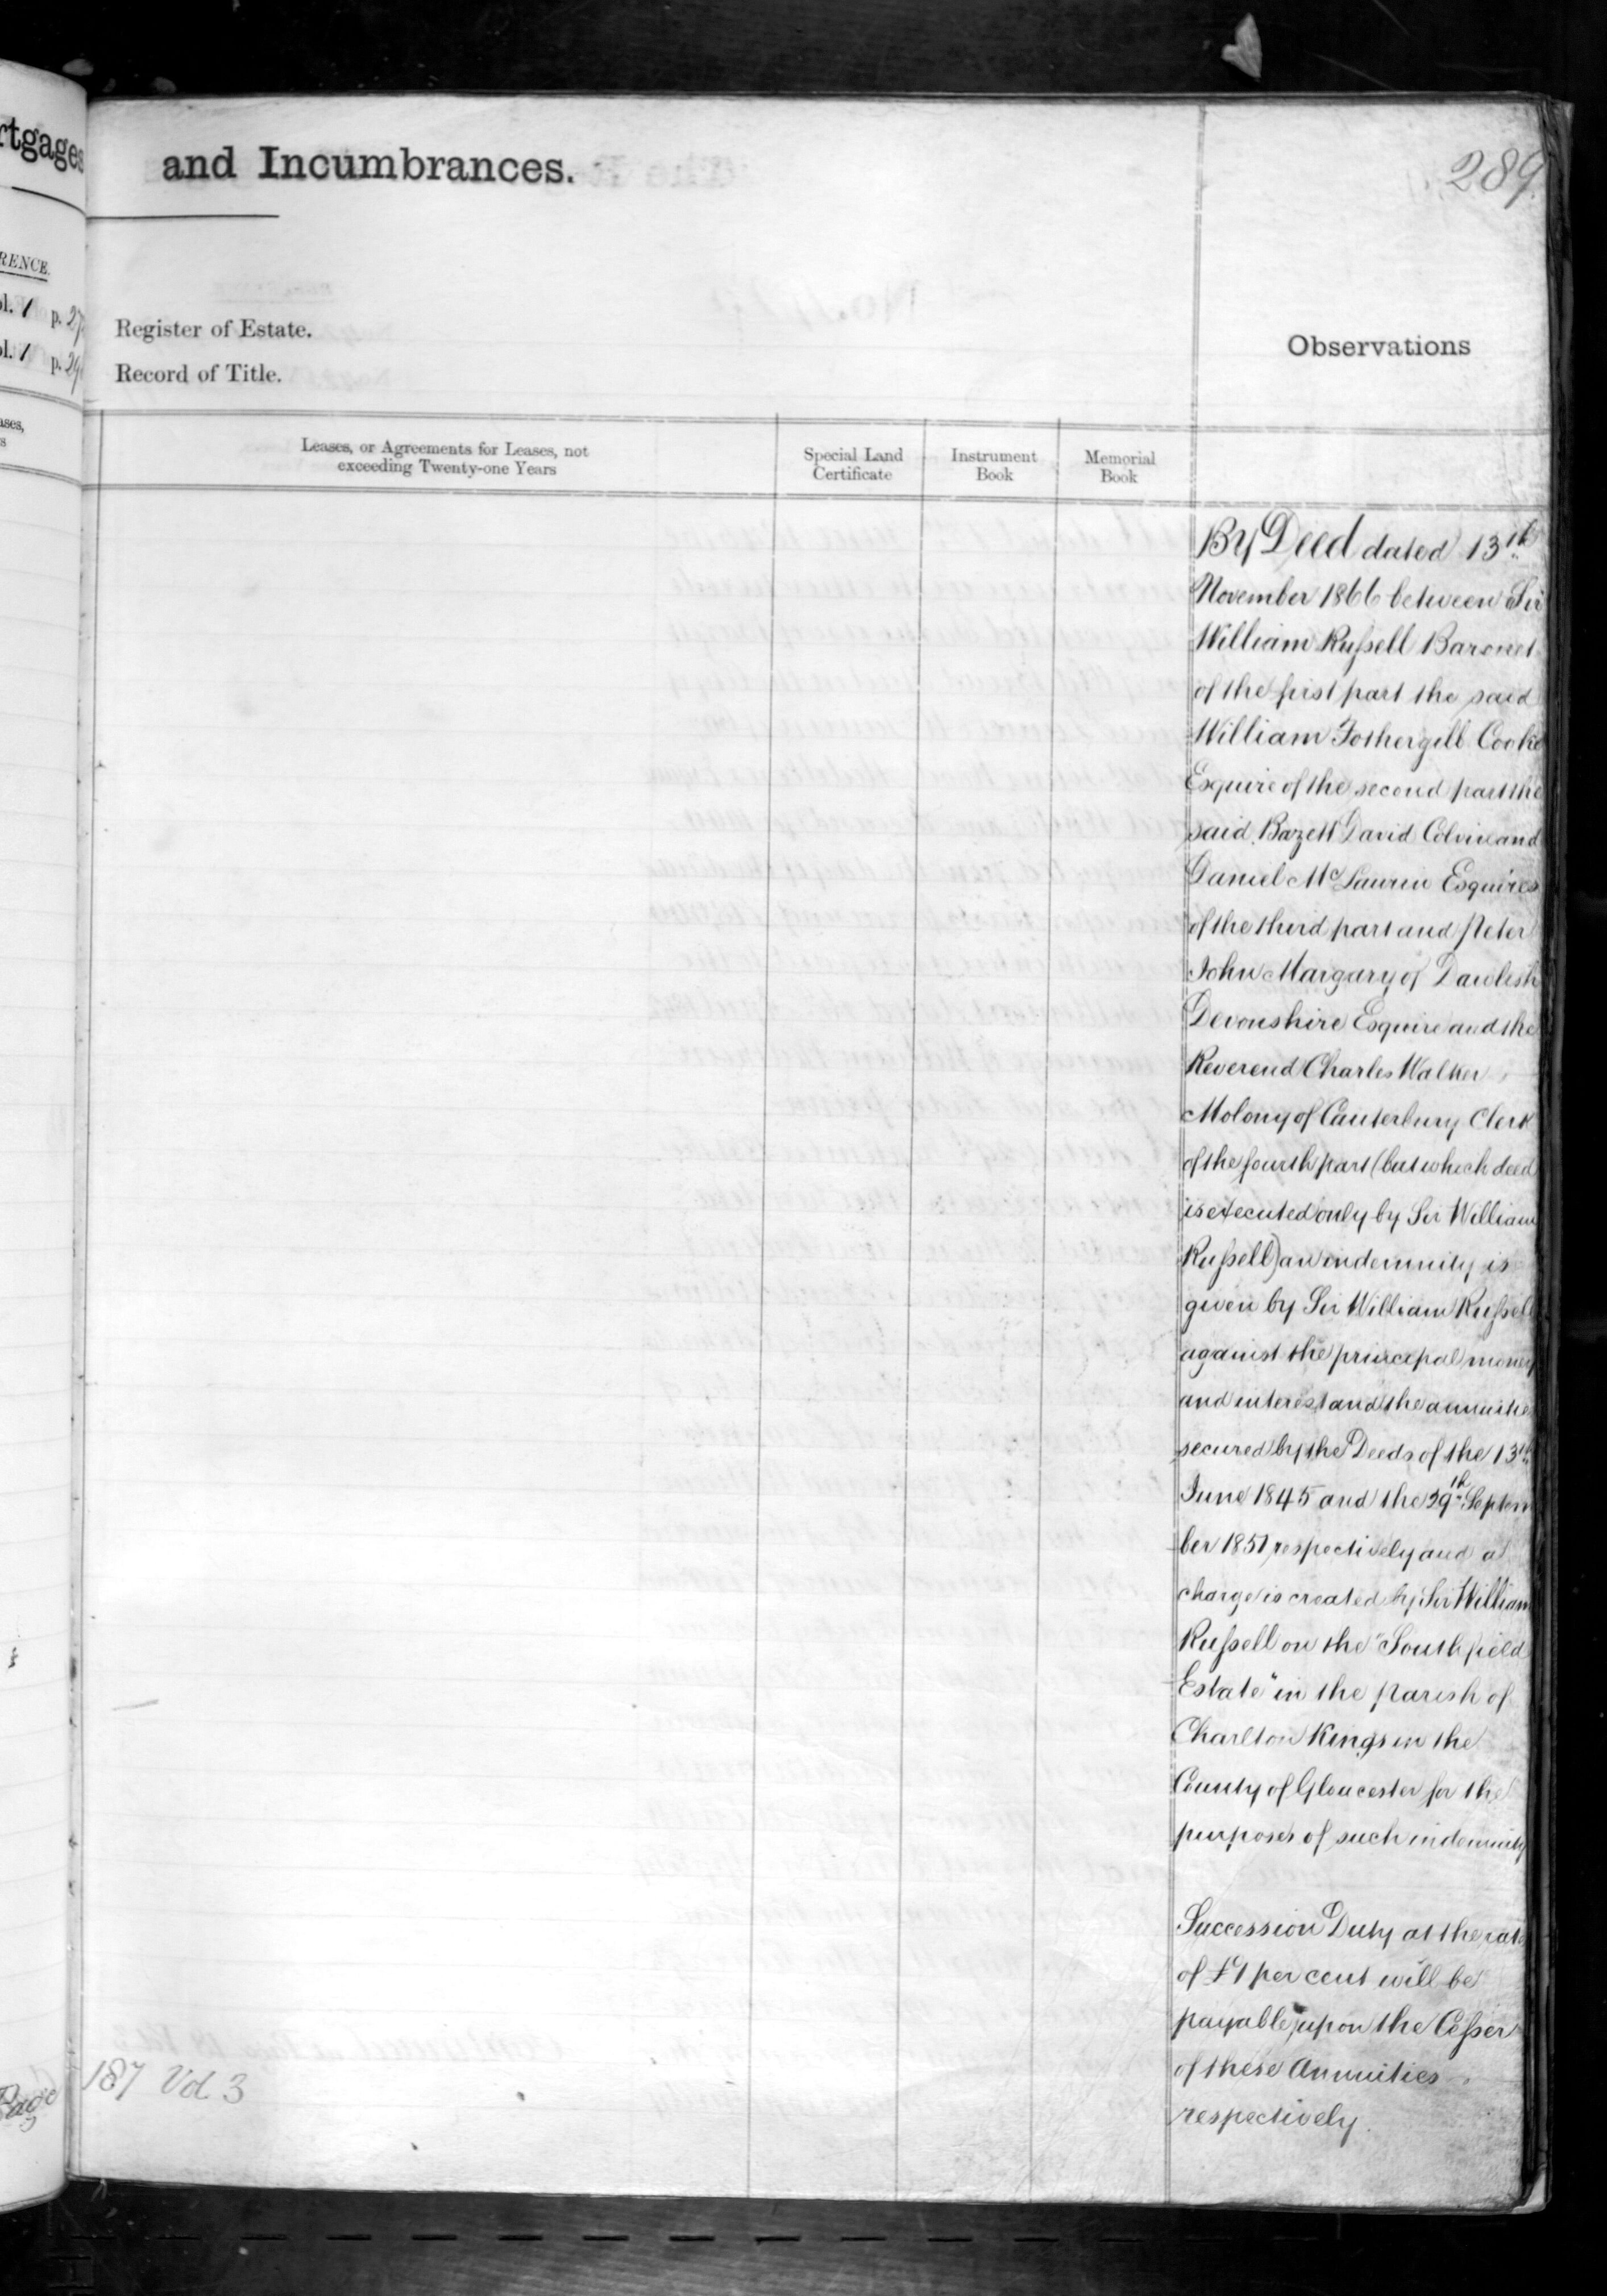 rtgages
and Incumbrances.
289
RENCE.
ol. 1 p. 27
ol. 1 p. 29
Register of Estate.
Record of Title.
Observations
ases,
s
Leases, or Agreements for Leases, not
exceeding Twenty-one Years
Special Land
Certificate
Instrument
Book
Memorial
Book
By Deed dated 13th
November 1866 between Sir
William Russell Baronet
of the first part the said
William Fothergill Cooke
Esquire of the second part the
said Bazett David Colvin and
Daniel McLaurin Esquires
of the third part and Peter
John Margary of Dawlish
Devonshire Esquire and the
Reverend Charles Walker
Molony of Canterbury Clerk
of the fourth part (but which deed
is executed only by Sir William
Russell) an indemnity is
given by Sir William Russell
against the principal money
and interest and the annuities
secured by the Deeds of the 13th
June 1845 and the 29th Septem
ber 1851 respectively and a
charge is created by Sir William
Russell on the "Southfield
Estate" in the parish of
Charlton Kings in the
County of Gloucester for the
purposes of such indemnity
Succession Duty at the rate
of £1 per cent will be
payable upon the Cesser
of these Annuities
respectively.
Page 187 Vol 3